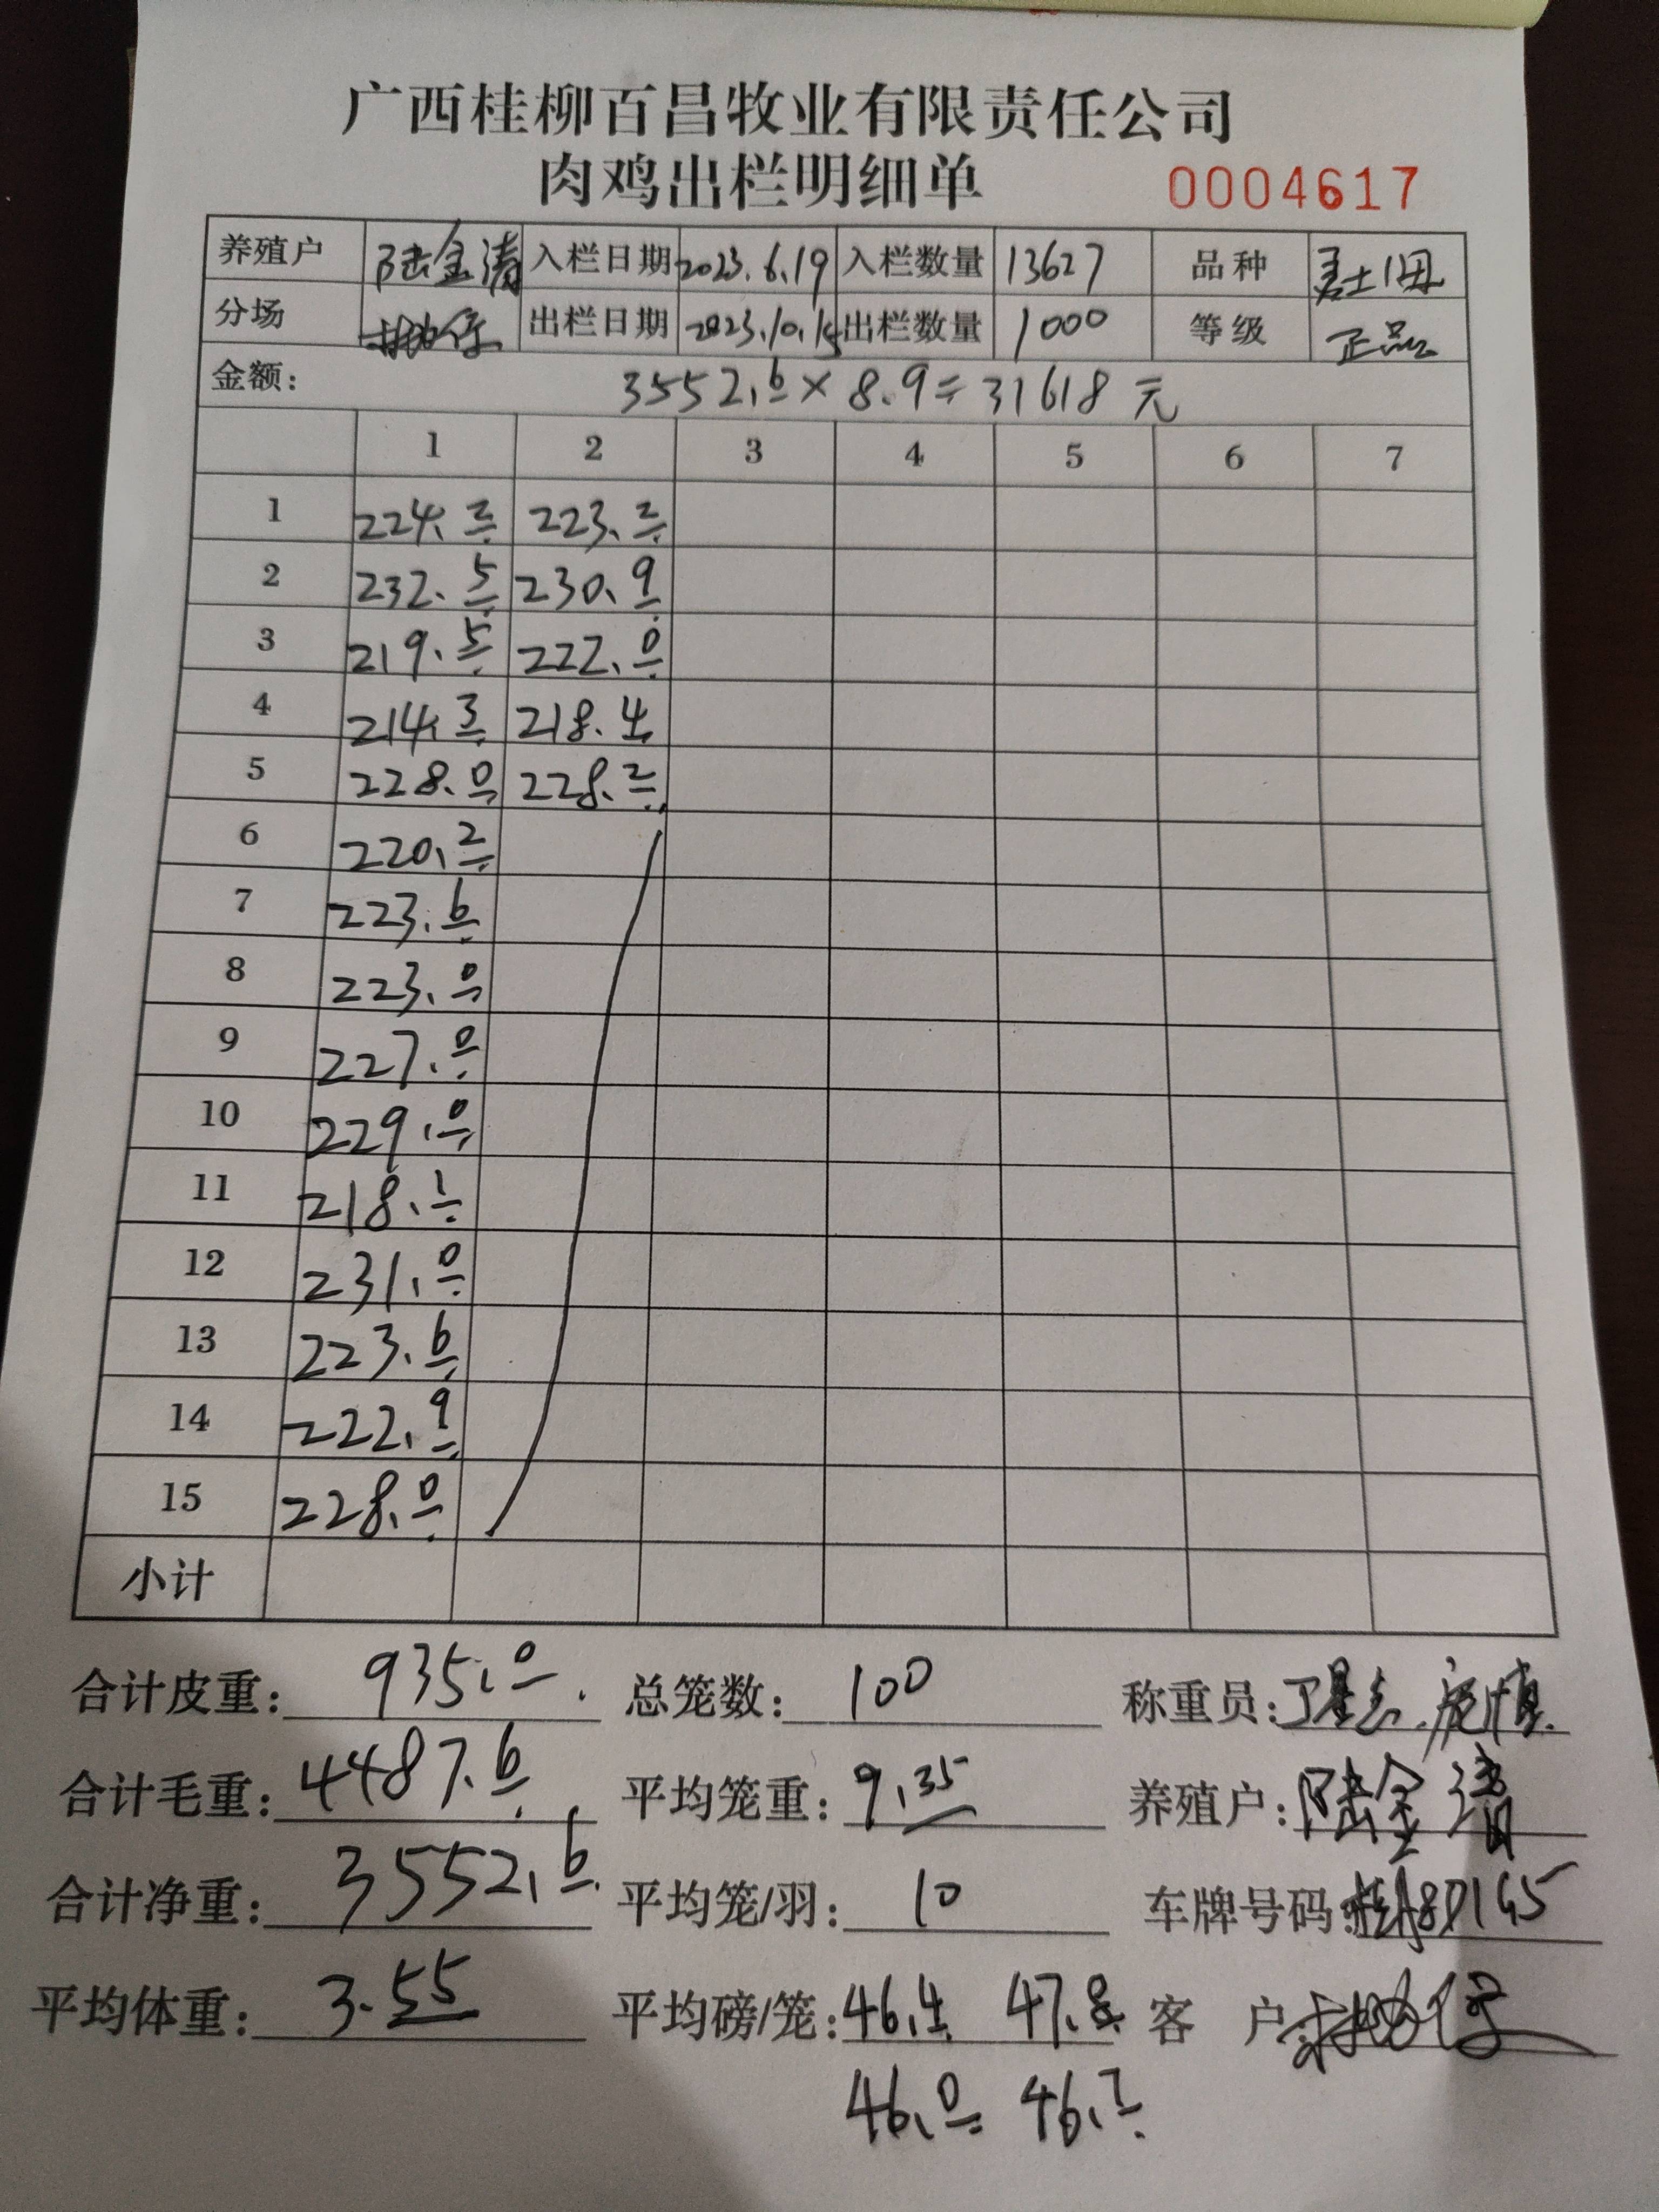 广西桂柳百昌牧业有限责任公司
肉鸡出栏明细单 0004617
养殖户 陆金清 入栏日期 2023.6.19 入栏数量 13627 品种
分场 出栏日期 2023.10.15 出栏数量 1000 等级 正品
金额: 3552.6×8.9=31618元
1 2 3 4 5 6 7
1 224.2 223.2
2 232.5 230.9
3 219.5 222.0
4 214.3 218.4
5 228.0 228.2
6 220.2
7 223.6
8 223.0
9 227.0
10 229.0
11 218.1
12 231.0
13 223.6
14 222.9
15 228.0
小计
合计皮重: 935.0 总笼数: 100 称重员:
合计毛重: 4487.6 平均笼重: 9.35 养殖户: 陆金清
合计净重: 3552.6 平均笼/羽: 10 车牌号码:
平均体重: 3.55 平均磅/笼: 46.4 47.8 客 户:
46.0 46.7